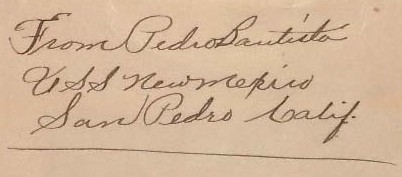 From Pedro Bautista
USS New Mexico
San Pedro Calif.